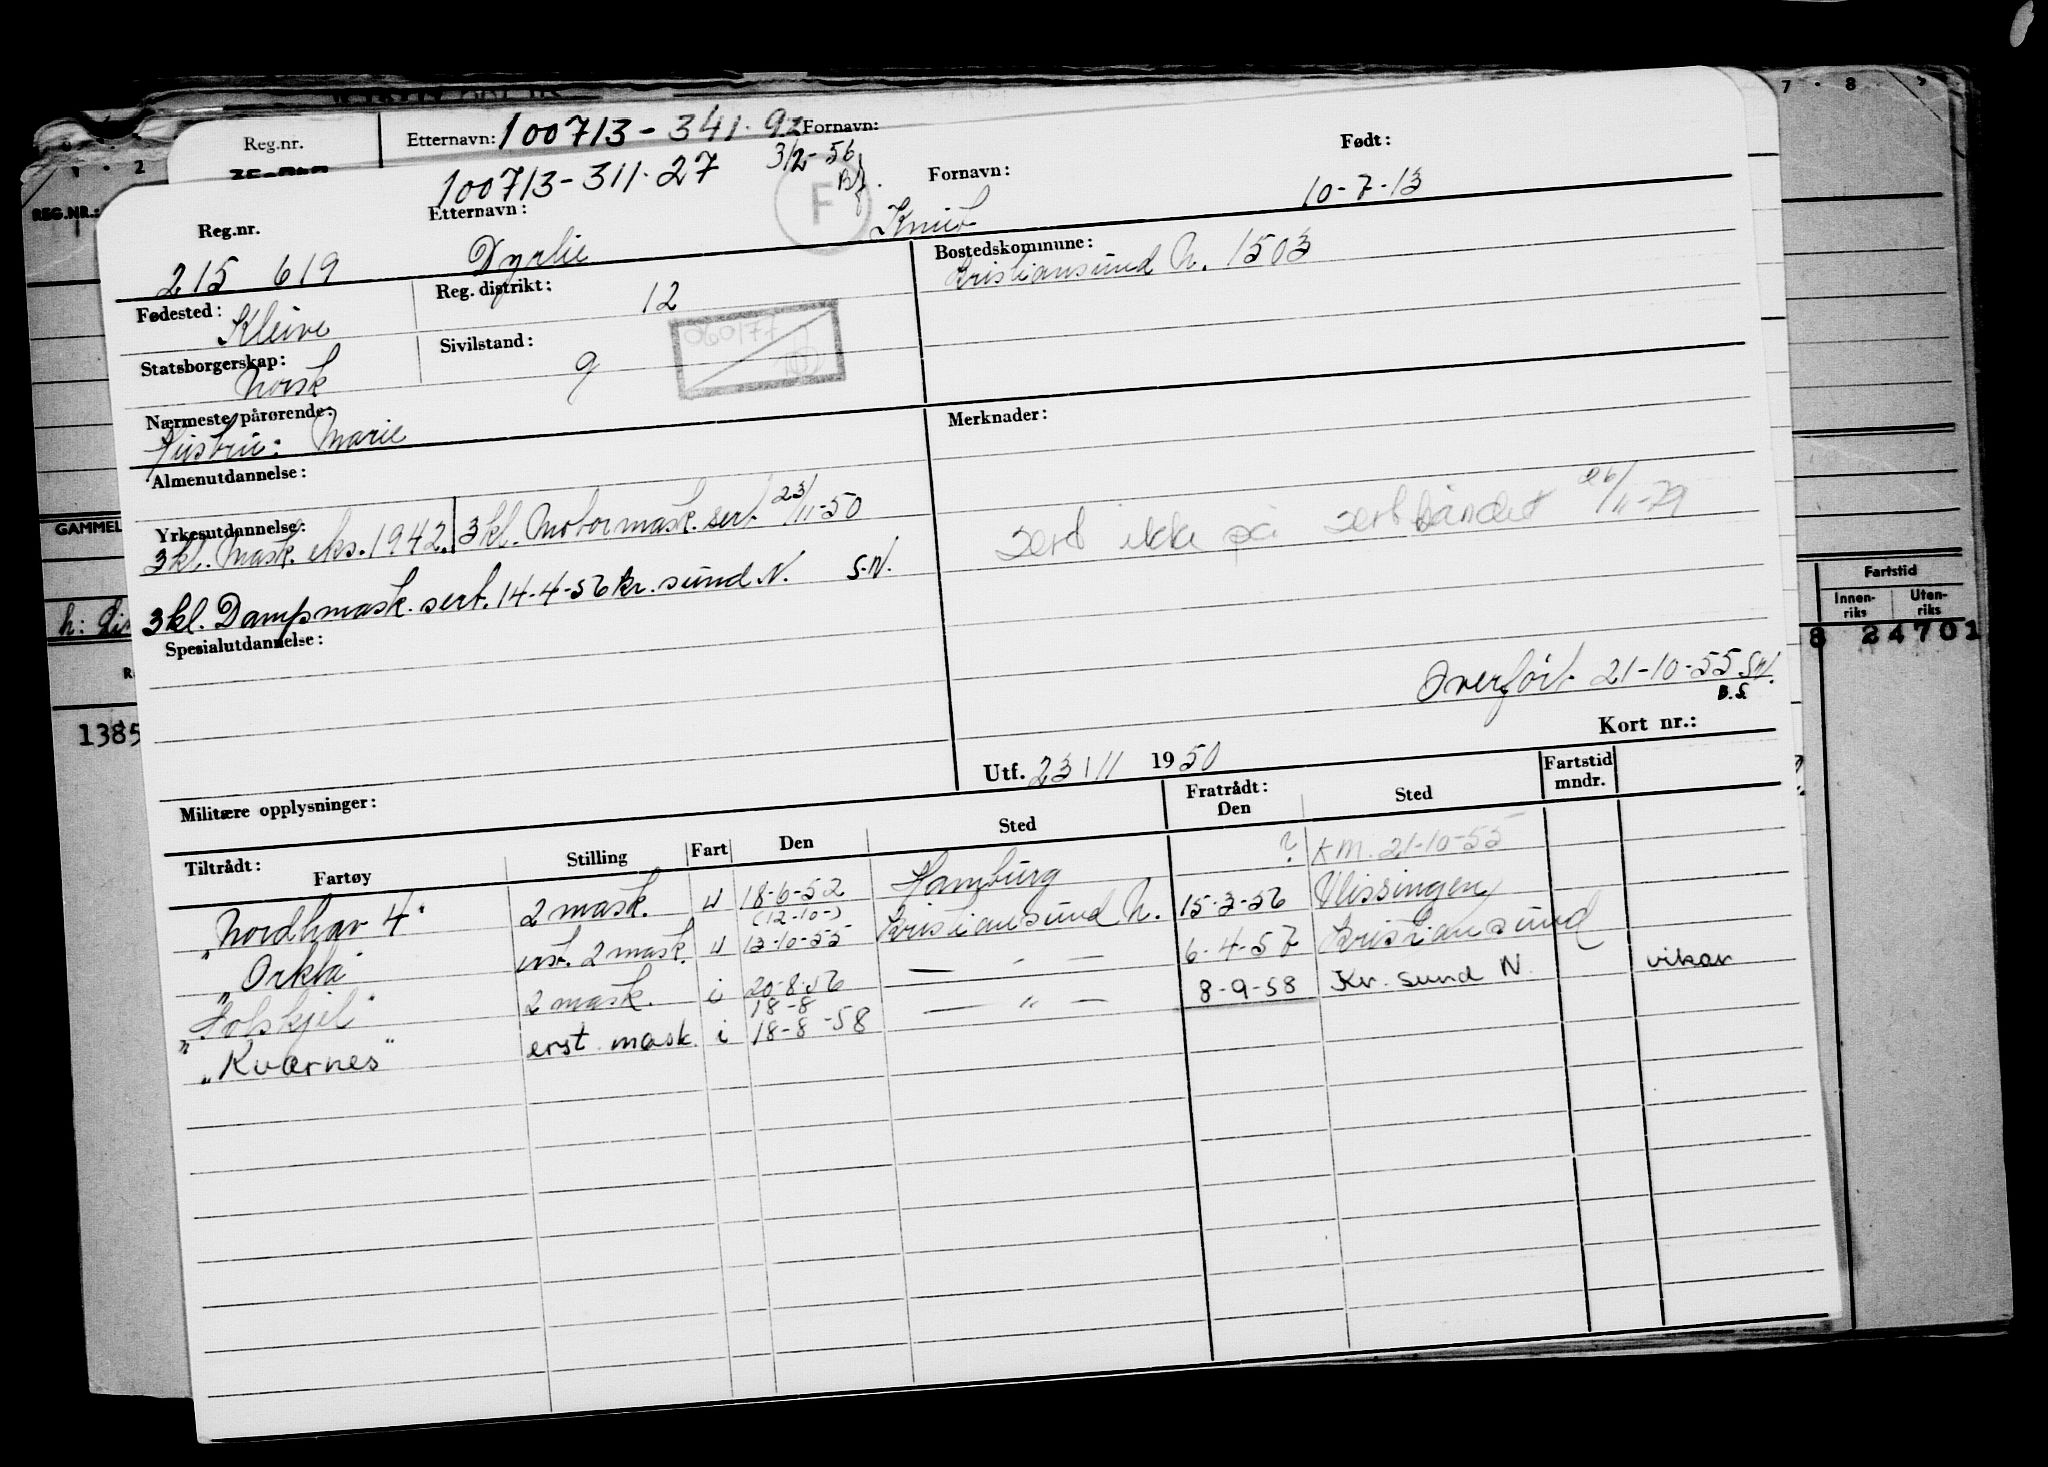 7 · 8
Reg.nr. Etternavn: 100713-341·92 Fornavn:
· 2
REG.NR.:
100713-311·27 3/2-56
F
Født:
Reg.nr. Etternavn: Fornavn: 10-7-13
215 619 Dyrlie Knut
Fødested: Kleive Reg. distrikt: 12 Bostedskommune:
Kristiansund N. 1503
Statsborgerskap: Norsk Sivilstand: g
060177
Nærmeste pårørende:
Hustru: Marie
Merknader:
Almenutdannelse:
GAMMEL
Yrkesutdannelse:
3 kl. Mask. eks. 1942. 3 kl. Motormask. sert. 23/11-50
sert ikke på sertbåndet 26/11-79
3 kl. Dampmask. sert. 14-4-56 kr. sund N. S.N.
Spesialutdannelse:
Fartstid
Innenriks Utenriks
8 24701
Overført 21-10-55 SN.
B.S.
1385
Kort nr.:
Utf. 23/11 1950
Militære opplysninger:
Tiltrådt: Fratrådt:
Fartøy Stilling Fart Den Sted Den Sted Fartstid mndr.
"Nordhav 4" 2 mask. u 18-6-52 Hamburg ? KM. 21-10-55
(12-10-)
"Orkla" 2 mask. u 13-10-55 Kristiansund N. 15-3-56 Vlissingen
"Holskjel" 2 mask. i 20-8-56 — " — 6-4-57 Kristiansund
18-8
"Kvernes" erst. mask. i 18-8-58 — " — 8-9-58 Kr. sund N. vikar